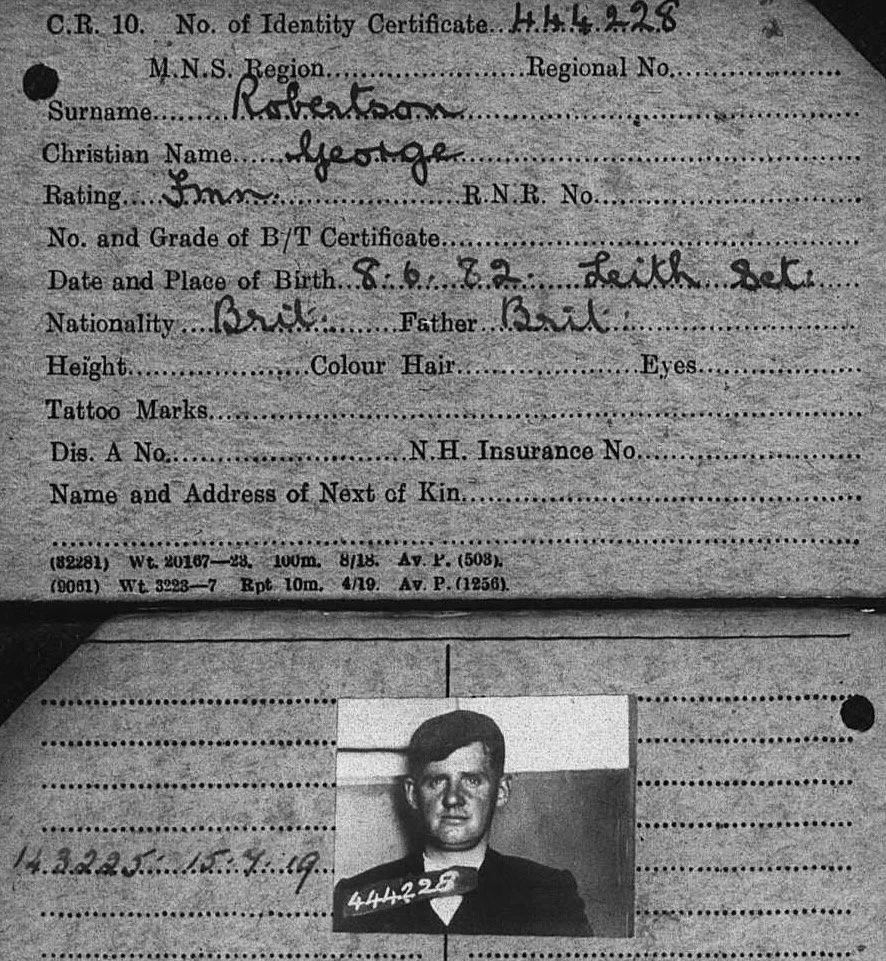 C.R. 10. No. of Identity Certificate..444228
M.N.S. Region......................Regional No..................
Surname.........Robertson
Christian Name......George
Rating....Fmn.....................R.N.R. No.
No. and Grade of B/T Certificate
Date and Place of Birth..8.6.82. Leith Sct:
Nationality....Brit:........Father..Brit:
Height....................Colour Hair....................Eyes
Tattoo Marks
Dis. A No..........................N.H. Insurance No.
Name and Address of Next of Kin
(82281) Wt. 20167—23. 100m. 8/18. Av. P. (503).
(9061) Wt. 3223—7 Rpt 10m. 4/19. Av. P. (1256).
143225: 15.7.19
444228